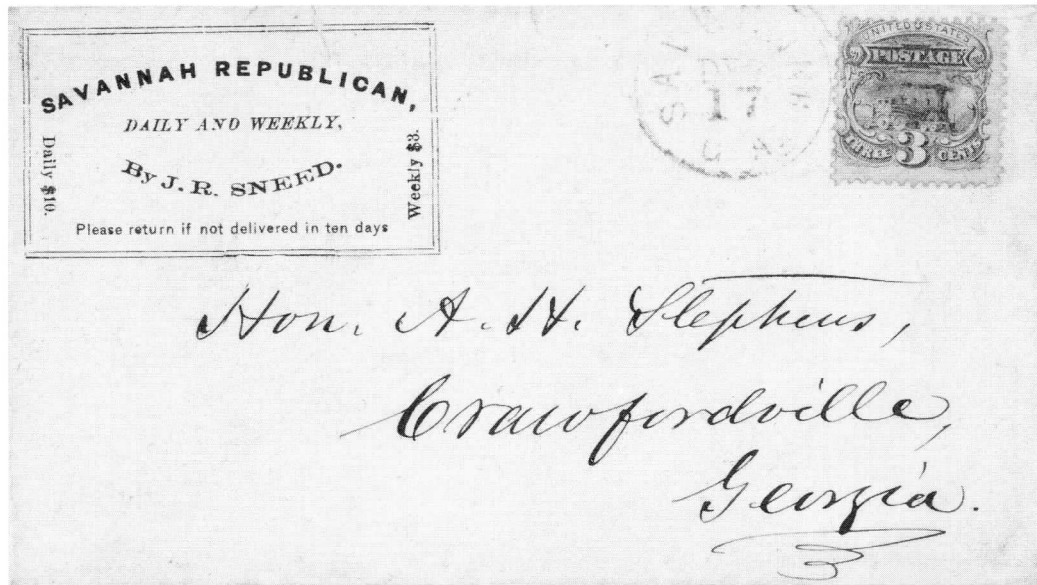 SAVANNAH REPUBLICAN,
DAILY AND WEEKLY,
By J. R. SNEED.
Daily $10.
Weekly $3.
Please return if not delivered in ten days
17
UNITED STATES
POSTAGE
THREE 3 CENTS
Hon. A. H. Stephens,
Crawfordville,
Georgia.